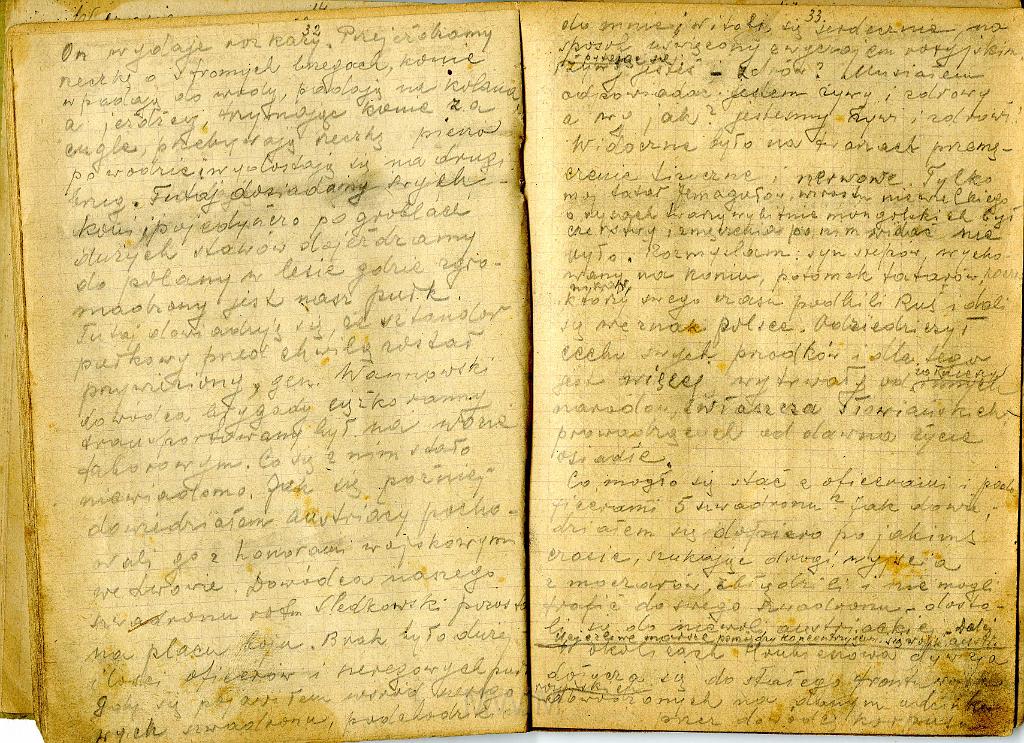 32
On wydaje rozkazy. Przejeżdżamy
rzeczkę o stromych brzegach, konie
wpadają do wody, padają na kolana,
a jeźdźcy, trzymając konie za
cugle, przebywają rzeczkę pieszo
po wodzie i wydostają się na drugi
brzeg. Tutaj dosiadamy swych
koni i pojedyńczo po groblach
dużych stawów dojeżdżamy
do polany w lesie gdzie zgro-
madzony jest nasz pułk.
Tutaj dowiaduję się, że sztandar
pułkowy przed chwilą został
przywieziony, gen. Wannowski
dowódca brygady ciężko ranny
transportowany był na wozie
taborowym. Co się z nim stało
niewiadomo. Jak się później
dowiedziałem austriacy pocho-
wali go z honorami wojskowymi
we Lwowie. Dowódca naszego
szwadronu rotm Śledkowski
na placu boju. Brak było dużej
ilości oficerów i szeregowych
Gdy się zjawiłem wśród
szwadronu, podchodzi
33.
do mnie i witali się serdecznie, na
sposób uświęcony zwyczajem rosyjskim
pytając się
jesteś - zdrów? Musiałem
odpowiadać jestem żywy i zdrowy
a wy, jak? jesteśmy żywi i zdrowi!
Widoczne było na twarzach przemę-
czenie fizyczne i nerwowe. Tylko
mój tatar, wzrostu niewielkiego
o rysach twarzy wybitnie mongolskich był
czerstwy i zmęczenia po nim widać nie
było. Rozmyślam: syn stepów, wycho-
wany na koniu, potomek tatarów,
który swego czasu podbili Ruś i dali
się we znak Polsce. Odziedziczył
cechy swych przodków i dla tego
jest więcej wytrwały od
narodów, zwłaszcza Słowiańskich,
prowadzących od dawna życie
osiadłe.
Co mogło się stać z oficerami i podo-
ficerami 5 szwadronu? Jak dowie-
działem się dopiero po jakimś
czasie, szukając drogi wyjścia
z moczarów, zbłądzili i nie mogli
trafić do swego szwadronu - dosta-
li się do niewoli austriackiej. Dalej
w okolicach Hrubieszowa dywizja
dołącza się do stałego frontu wojsk
rosyjskich
dowodzonych na danym odcinku
przez dowódcę korpusu